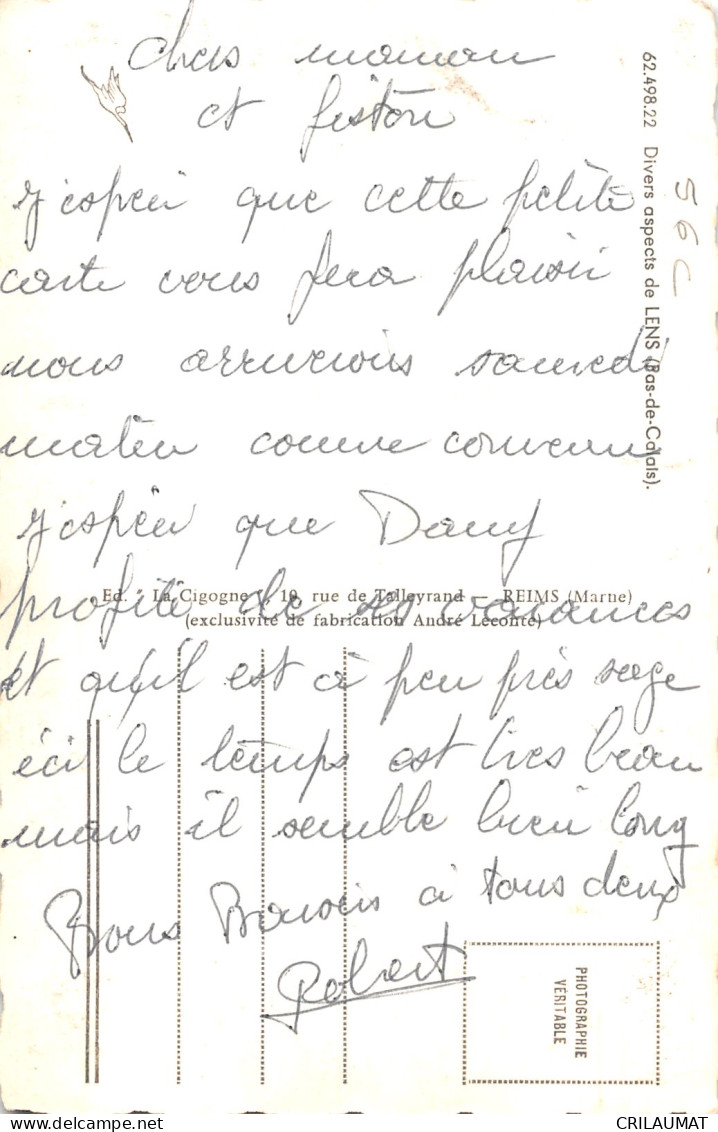 chers maman
et fiston
j'espère que cette petite
carte vous fera plaisir
nous arriverons samedi
matin comme convenu
j'espère que Dany
profite de ses vacances
et qu'il est à peu près sage
ici le temps est très beau
mais il semble bien long
Bons Baisers à tous deux
Robert
62.498.22 Divers aspects de LENS (Pas-de-Calais).
56 C
Ed. " La Cigogne ", 19, rue de Talleyrand — REIMS (Marne)
(exclusivité de fabrication André Leconte)
PHOTOGRAPHIE
VÉRITABLE
CRILAUMAT